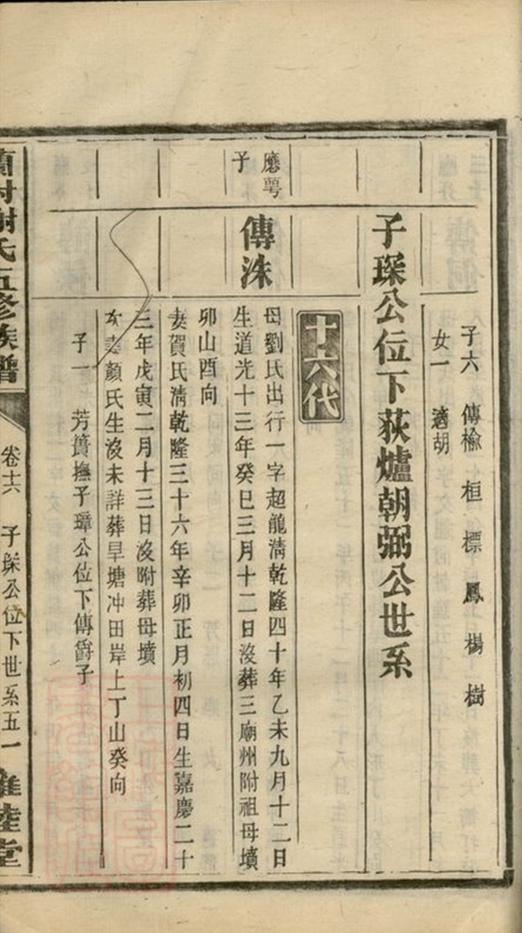 子六　傳檢　桓　標　鳳　楊　樹
女一　適胡
子琛公位下荻爐朝弼公世系
十六代
應萼子
傳洙
母劉氏出行一字超龍清乾隆四十年乙未九月十二日
生道光十三年癸巳三月十二日沒葬三廟州附祖母墳
卯山酉向
妻賀氏清乾隆三十六年辛卯正月初四日生嘉慶二十
三年戊寅二月十三日沒附葬母墳
妻顏氏生沒未詳葬旱塘冲田岸上丁山癸向
子一　芳蕢撫子璋公位下傳爵子
謝氏五修族譜
卷十六　子琛公位下世系五一
雍睦堂